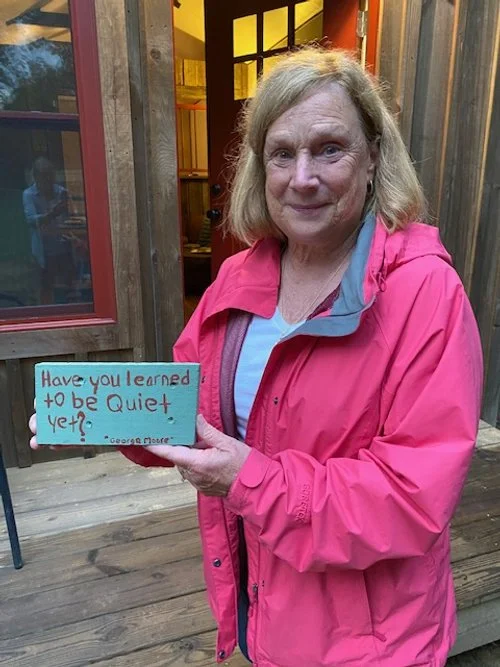 Have you learned
to be Quiet
yet?
"George Moore"